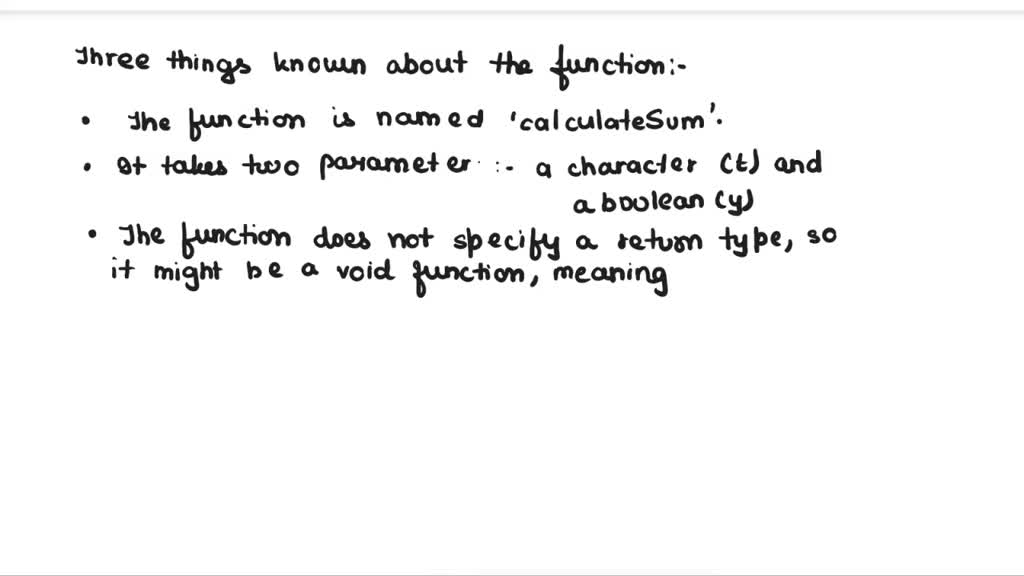 Three things known about the function:-
• The function is named 'calculateSum'.
• It takes two parameter :- a character (t) and
a boolean (y)
• The function does not specify a return type, so
it might be a void function, meaning